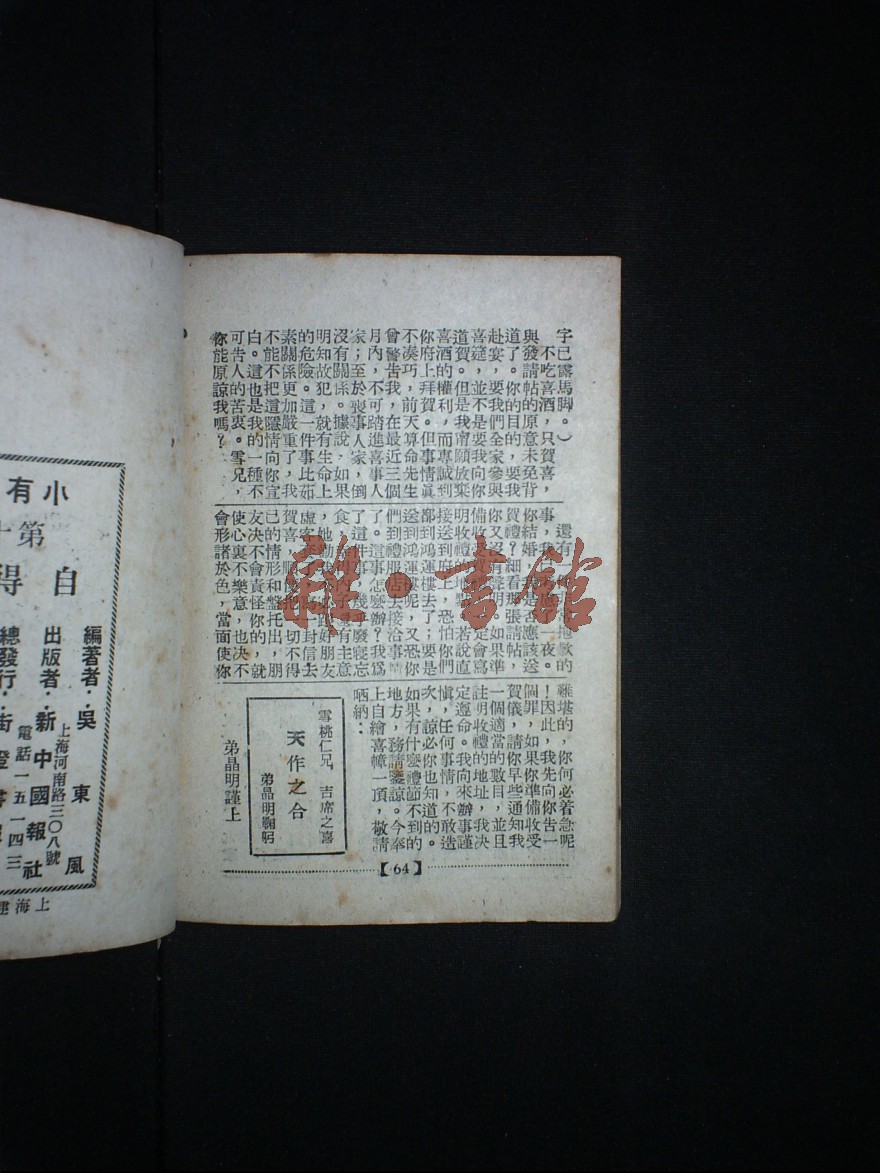 字已露馬脚。)
不吃喜酒,只賀喜,
與發請帖的原意未免背
道了。你的目的,要我
赴宴,要我們全家參與
喜筵,並不是要我向你
道賀。但是我甯願放棄
喜酒的權利,而專誠到
你府上拜賀。但事情眞
不湊巧,前天算命先生
曾警告我,在最近三個
月內,不可踏進喜事人
家;至於喪事人家,倒
沒有關係。據說,如果
明知故犯,就有生命上
的危險。這一件事比茹
素關係更加嚴重了,我
不能不把這隱情向你宣
白。這也是我的一種不
可告人的苦衷。雪兄,
你能原諒我嗎?
還有
事,我
你結婚,是否應該送
賀禮?細看那張請帖,
你又沒有聲明。如果準
備收
明收禮地點。若說直
接送到府上,恐怕你們
都到鴻運樓去了;要是
送到鴻運樓呢,又恐你
們到禮服店去接洽事情
了。這事怎麼辦?我爲
了這件事,幾乎廢寢忘
食,
,她
虛客
賀喜,順便把一切不得
已的情形和盤托出,朋
友決不會責怪你的,就
使心裏不樂意,也決不
會形諸於色,當面使你
難堪的,你何必着急呢
!因此,我先向你告一
個罪,如果你準備收受
賀儀,請你早些通知我
一個適當的數目,並且
註明收禮的地址,我決
定遵命。我向來辦事謹
愼,任何事情,不敢造
次,諒必你也知道的。
如果有什麼禮節不到的
地方,務請鑒諒。今奉
上自繪喜幛一頂,敬請
哂納:
雪桃仁兄 吉席之喜
天作之合
弟晶明鞠躬
弟晶明謹上
【64】
雜·書館
小有
第十
自得
編著者·吳東風
出版者·新中國報社
上海河南路三〇八號
電話一五一四三
總發行·街燈書
上海建